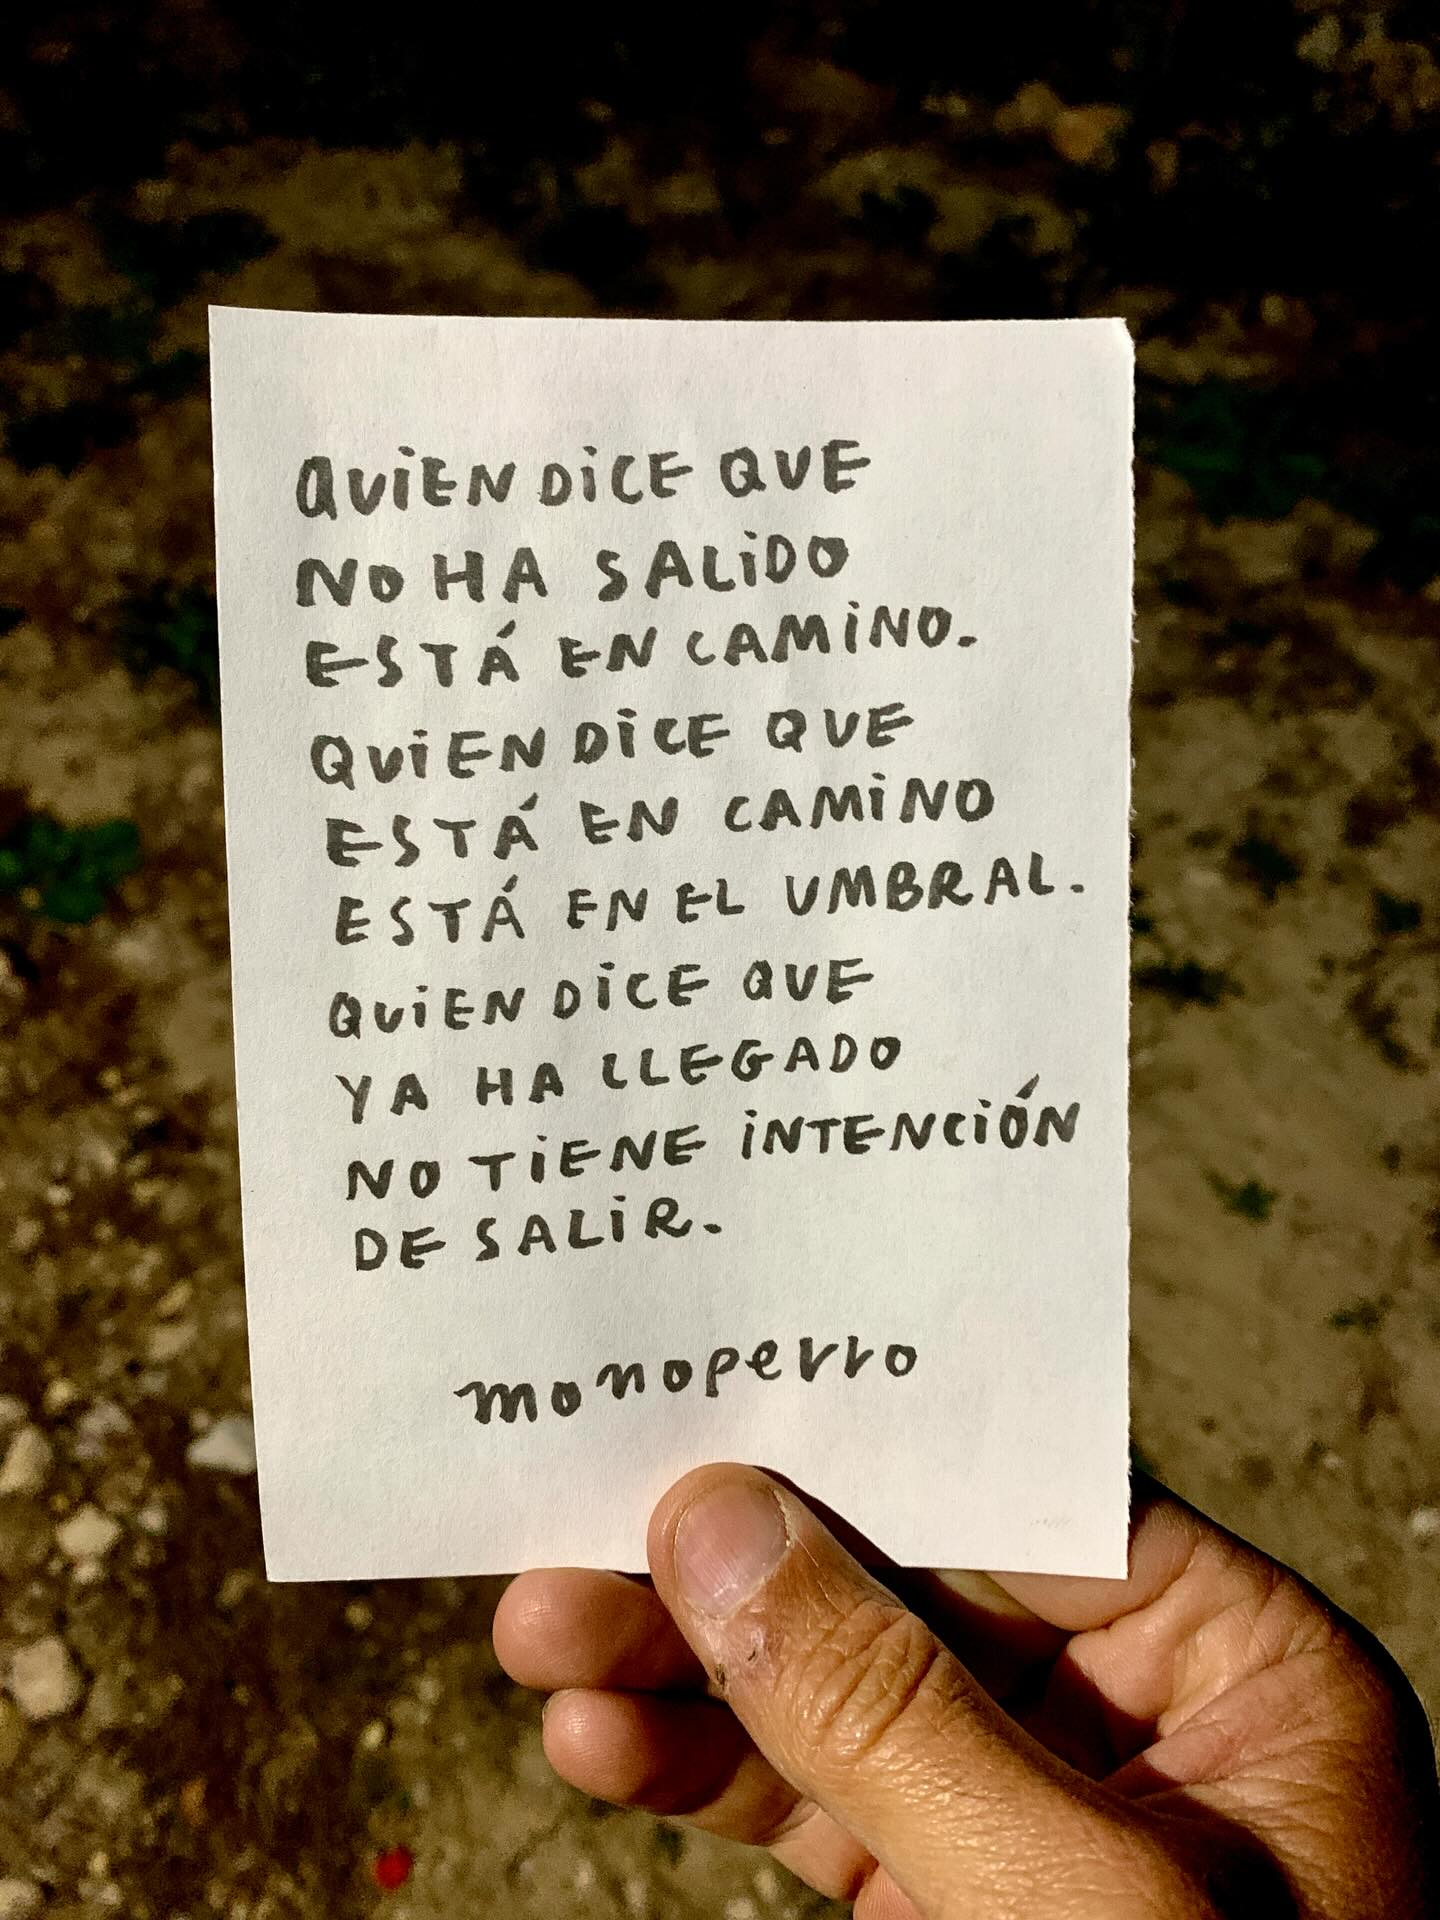 QUIEN DICE QUE
NO HA SALIDO
ESTÁ EN CAMINO.
QUIEN DICE QUE
ESTÁ EN CAMINO
ESTÁ EN EL UMBRAL.
QUIEN DICE QUE
YA HA LLEGADO
NO TIENE INTENCIÓN
DE SALIR.
monoperro